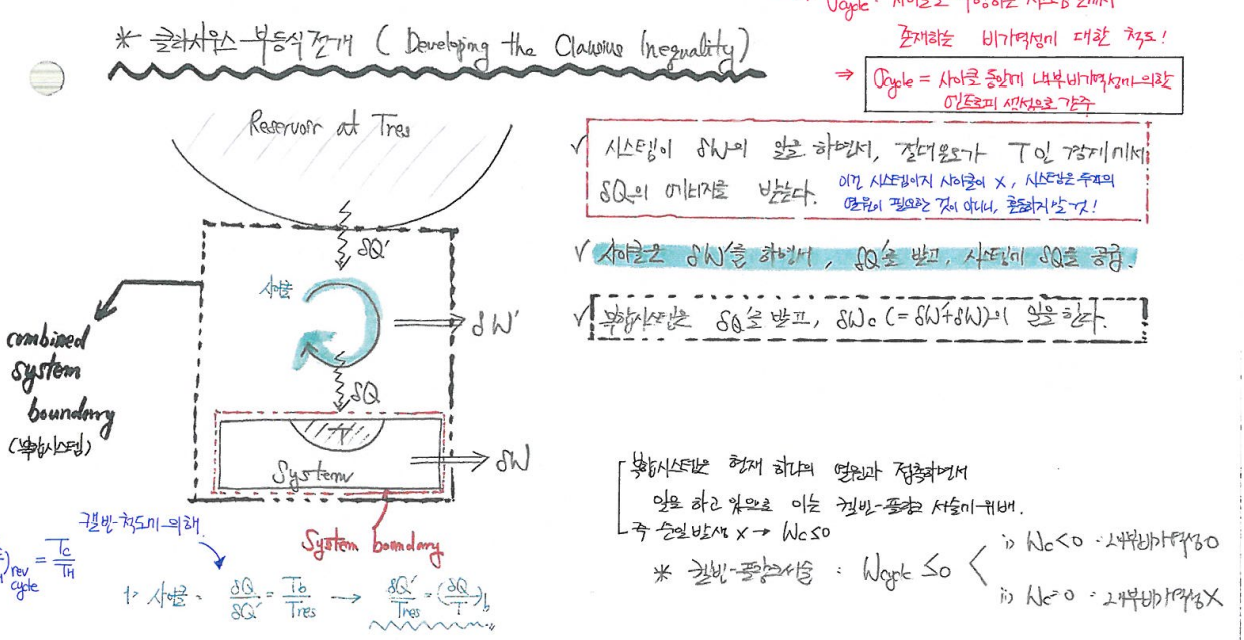 σcycle : 사이클을 수행하는 시스템 안에서
존재하는 비가역성에 대한 척도!
⇒ σcycle = 사이클 동안에 내부비가역성에 의한
엔트로피 생성으로 간주
* 클라우지우스 부등식 전개 ( Developing the Clausius Inequality)
Reservoir at Tres
√ 시스템이 δW의 일을 하면서, 절대온도가 T인 경계에서
δQ의 에너지를 받는다.
이건 시스템이지 사이클이 X, 시스템은 두개의
열원이 필요한 것이 아니니, 혼동하지 말 것!
√ 사이클은 δW'를 하면서, δQ'를 받고, 시스템에 δQ를 공급.
√ 복합시스템은 δQ'를 받고, δWc (=δW'+δW)의 일을 한다.
δQ'
사이클
δW'
δQ
combined
system
boundary
(복합시스템)
T
System
δW
System boundary
복합시스템은 현재 하나의 열원과 접촉하면서
일을 하고 있으므로 이는 켈빈-플랑크 서술에 위배.
즉 순일 발생 X → Wc≤0
* 켈빈-플랑크서술 : Wcycle ≤0
i) Wc<0 : 내부비가역성O
ii) Wc=0 : 내부비가역성X
켈빈-척도에 의해
)rev cycle = Tc/TH
1> 사이클 : δQ/δQ' = Tb/Tres → δQ'/Tres = (δQ/T)b